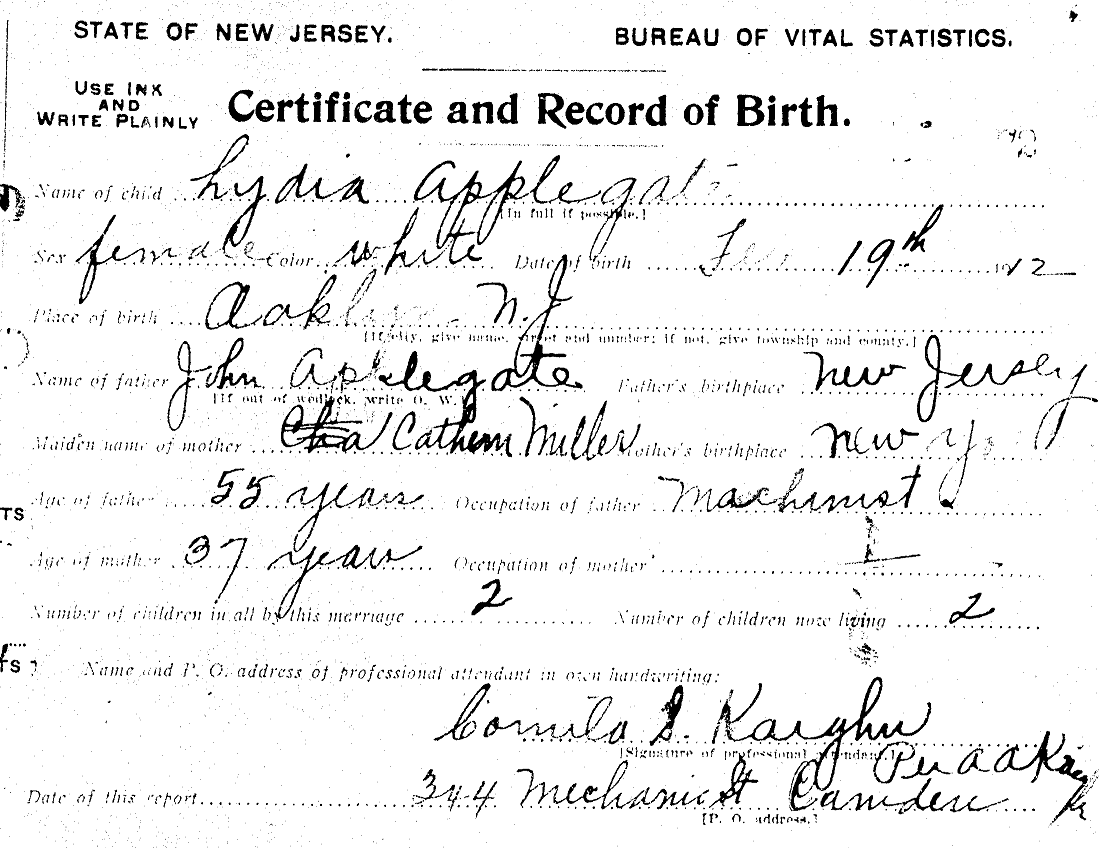 STATE OF NEW JERSEY. BUREAU OF VITAL STATISTICS.
USE INK AND WRITE PLAINLY
Certificate and Record of Birth.
Name of child Lydia Applegate
[In full if possible.]
Sex female Color white Date of birth 19th 1912
Place of birth Oaklyn N.J
[If city, give name, street and number; if not, give township and county.]
Name of father John Applegate Father's birthplace New Jersey
[If out of wedlock, write O. W.]
Maiden name of mother Cathern Miller Mother's birthplace New
Age of father 55 years Occupation of father Machinist
TS
Age of mother 37 years Occupation of mother
Number of children in all by this marriage 2 Number of children now living 2
TS
Name and P. O. address of professional attendant in own handwriting:
Comila S. Kaighn
[Signature of professional attendant.]
Per A A
Date of this report 344 Mechanic St Camden
[P. O. address.]